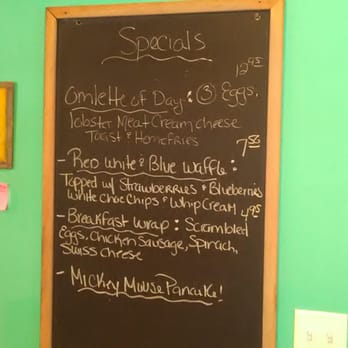 Specials
12.95
Omlette of Day: ③ Eggs,
lobster Meat Cream cheese
Toast & Homefries
- Red White & Blue Waffle:
Topped w/ Strawberries & Blueberries
White Choc Chips & Whip Cream 4.95
- Breakfast Wrap: Scrambled
Eggs, Chicken Sausage, Spinach,
Swiss Cheese
- Mickey Mouse Pancake!